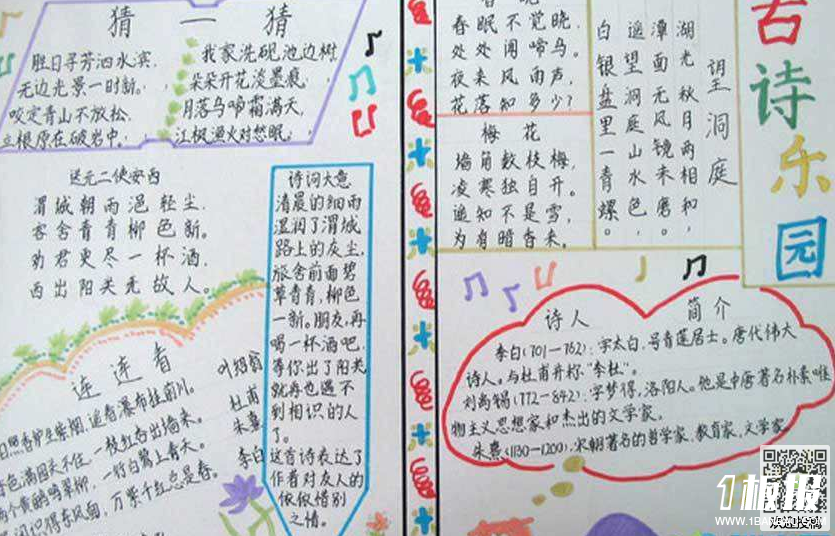 猜一猜
胜日寻芳泗水滨，
无边光景一时新。
咬定青山不放松，
立根原在破岩中。
我家洗砚池边树
朵朵开花淡墨痕，
月落乌啼霜满天，
江枫渔火对愁眠，
送元二使安西
渭城朝雨浥轻尘，
客舍青青柳色新。
劝君更尽一杯酒，
西出阳关无故人。
诗词大意
清晨的细雨
湿润了渭城
路上的灰尘，
旅舍前面碧
草青青，柳色
一新。朋友，再
喝一杯酒吧，
等你出了阳关
就再也遇不
到相识的人
了。
这首诗表达了
作者对友人的
依依惜别
之情。
连连看
日照香炉生紫烟
遥看瀑布挂前川。
春色满园关不住
一枝红杏出墙来。
两个黄鹂鸣翠柳
一行白鹭上青天。
等闲识得东风面
万紫千红总是春。
叶绍翁
杜甫
朱熹
李白
春眠不觉晓，
处处闻啼鸟。
夜来风雨声，
花落知多少？
梅花
墙角数枝梅，
凌寒独自开。
遥知不是雪，
为有暗香来。
望洞庭
湖光秋月两相和，
潭面无风镜未磨。
遥望洞庭山水色，
白银盘里一青螺。
古诗乐园
诗人简介
李白(701—762)：字太白，号青莲居士。唐代伟大
诗人。与杜甫并称“李杜”。
刘禹锡(772—842)：字梦得，洛阳人。他是中唐著名朴素唯
物主义思想家和杰出的文学家。
朱熹(1130—1200)，宋朝著名的哲学家、教育家、文学家。
1板报
WWW.1BANBAO.COM